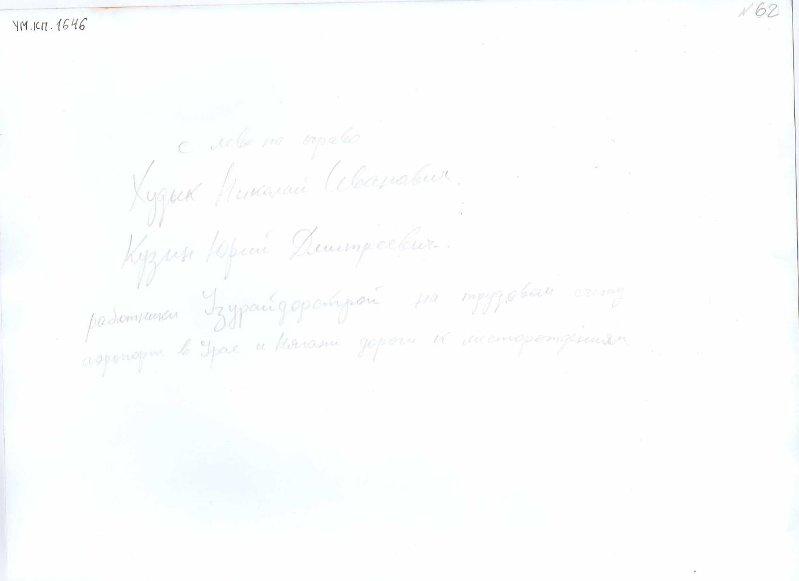 УМ.КП.1646
№62
с лева на право
Худык Николай Иванович.
Кузин Юрий Дмитреевич.
работники на трудовом
аэропорт в Урае и Нягани дороги к месторождениям